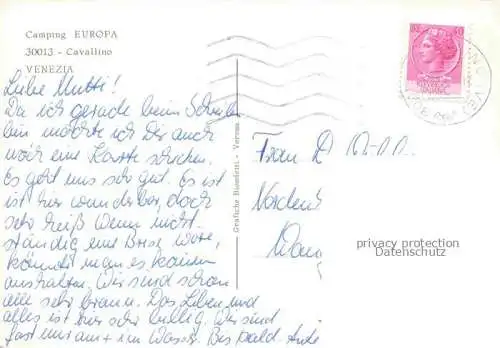 Camping EUROPA
30013 - Cavallino
VENEZIA
Liebe Mutti!
Da ich gerade beim Schreiben
bin möchte ich Dir auch
eine Karte schicken.
Es geht uns sehr gut. Es ist
ist hier wunderbar, doch
sehr heiß wenn nicht
ständig eine Brise wäre,
könnte man es kaum
aushalten. Wir sind schon
alle sehr braun. Das Leben und
alles ist hier sehr billig. Wir sind
fast nur am + im Wasser. Bis bald
Grafiche Biondetti - Verona
Frau D
privacy protection
Datenschutz